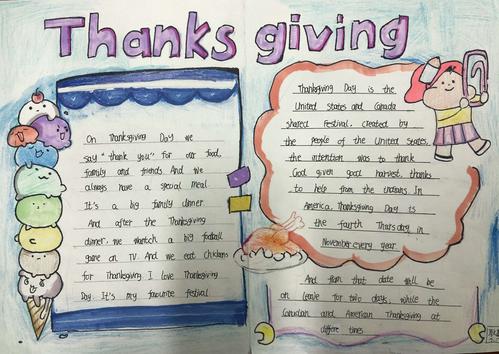 Thanks giving
On Thanksgiving Day we
say "thank you" for our food,
family and friends. And we
always have a special meal.
It's a big family dinner.
And after the Thanksgiving
dinner, we watch a big football
game on TV. And we eat chickens
for Thanksgiving. I love Thanksgiving
Day. It's my favourite festival
Thanksgiving Day is the
United States and Canada
shared festival, created by
the people of the United States,
the intention was to thank
God given good harvest, thanks
to help from the Indians. In
America, Thanksgiving Day is
the fourth Thursday in
November every year.
And from that date will be
on leave for two days, while the
Canadian and American Thanksgiving at
different times